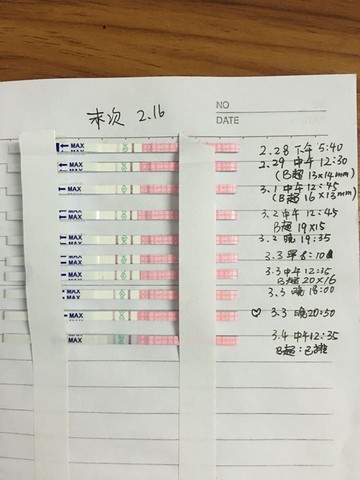 NO
DATE
末次 2.16
MAX 2.28 下午 5:40
MAX 2.29 中午 12:30
(B超 13×14mm)
MAX 3.1 中午 12:45
(B超 16×13mm)
MAX 3.2 中午 12:45
B超 19×15
MAX 3.2 晚 19:35
MAX 3.3 早 8:10
MAX 3.3 中午 12:15
B超 20×16
MAX 3.3 晚 18:00
MAX ♡ 3.3 晚 20:50
MAX 3.4 中午 12:35
B超:已排